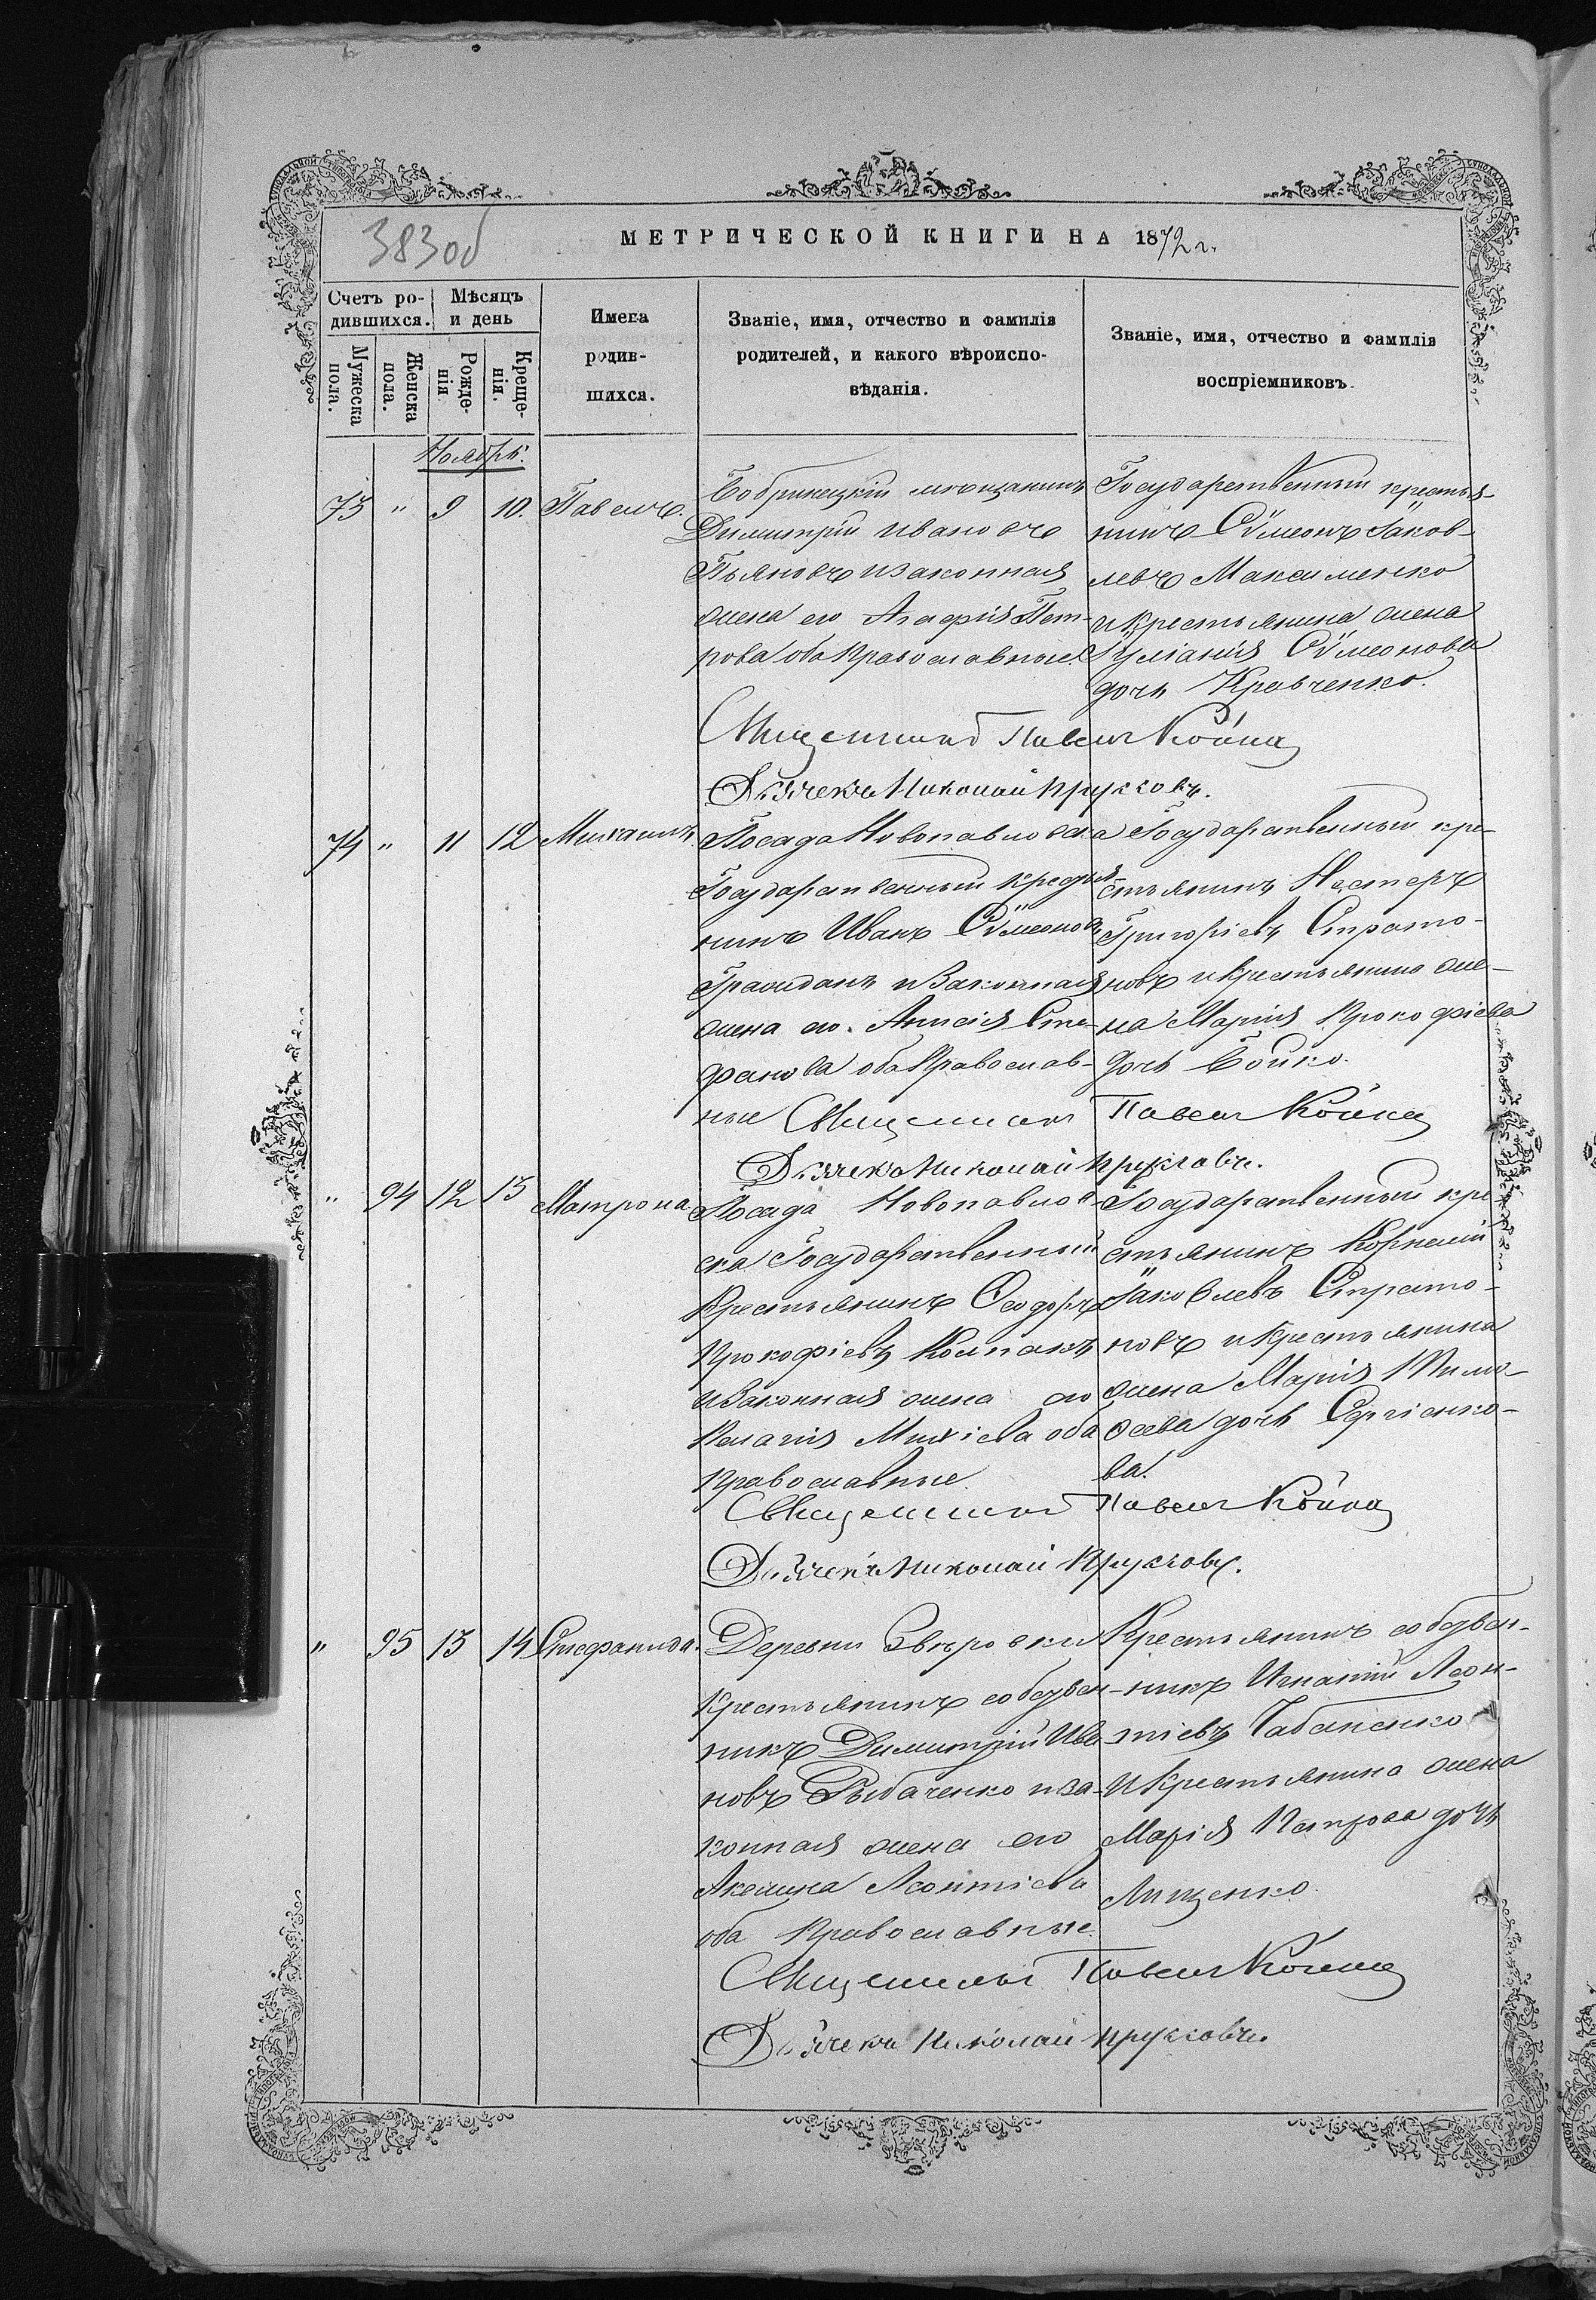 383об
МЕТРИЧЕСКОЙ КНИГИ НА 1872 г.
Счетъ ро-
дившихся.
Мѣсяцъ
и день
Имена
родив-
шихся.
Званіе, имя, отчество и фамилія
родителей, и какого вѣроиспо-
вѣданія.
Званіе, имя, отчество и фамилія
воспріемниковъ.
Мужеска
пола.
Женска
пола.
Рожде-
нія
Креще-
нія.
Ноябрь.
73 " 9 10. Павелъ.
Бобринецкій мѣщанинъ
Димитрій Ивановъ
Пьяновъ и законная
жена его Агафія Пет-
рова оба православные
Государственный крестья-
нинъ Сѵмеонъ Іаков-
левъ Максименко
и крестьянина жена
Іуліанія Сѵмеонова
дочь Кравченко.
Священникъ Павелъ
Дьячекъ Николай Круглов.
74 " 11 12 Михаилъ
Посада Новопавловска
Государственный крестья
нинъ Иванъ Сѵмеоновъ
Гражданъ и законная
жена его Анисія Сте-
фанова оба Православ-
ные
Государственный кре-
стьянинъ Нестеръ
Григоріевъ Страто-
новъ и крестьянина же-
на Марія Прокофіева
дочь Бойко.
Священникъ Павелъ
Дьячекъ Николай Круглов.
" 94 12 13 Матрона
Посада Новопавлов-
ска Государственный
крестьянинъ Ѳеодоръ
Прокофіевъ Колпакъ
и законная жена его
Пелагія Михіева оба
православные
Государственный кре
стьянинъ Корнелій
Іаковлевъ Страто-
новъ и крестьянина
жена Марія Тимо-
ѳеева дочь Сергіенко-
ва.
Священникъ Павелъ
Дьячекъ Николай Круглов.
" 95 13 14 Стефанида.
Деревни Звѣровки
крестьянинъ собствен-
никъ Димитрій Ива
новъ Рыбаченко и за-
конная жена его
Акелина Леонтіева
оба Православные
Крестьянинъ собствен-
никъ Игнатій Леон-
тіевъ Чабаненко
и крестьянина жена
Марія Петрова дочь
Лищенко.
Священникъ Павелъ
Дьячекъ Николай Круглов.